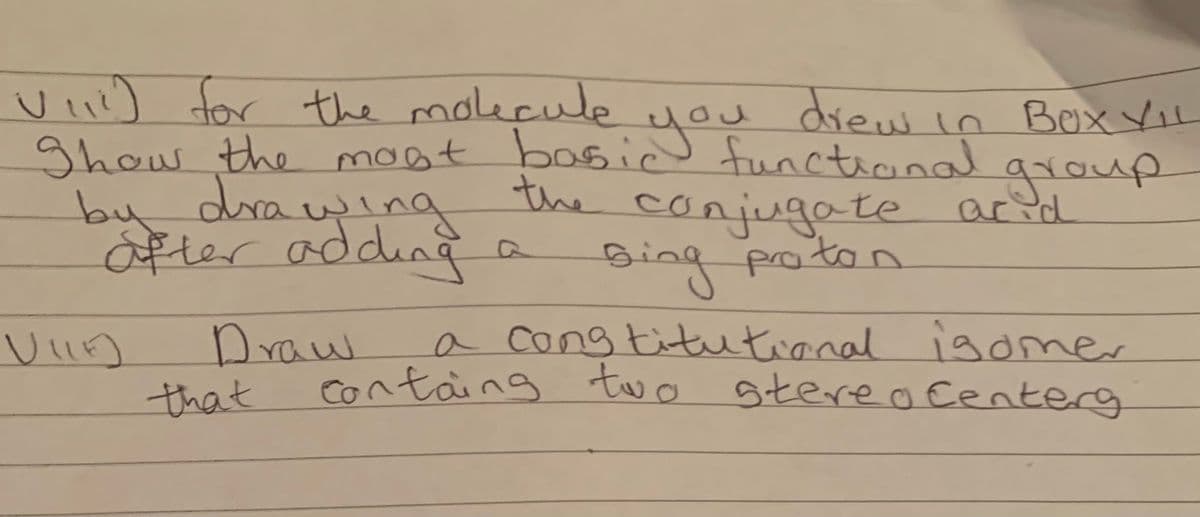 viii) for the molecule you drew in Box vii
Show the most basic functional group
by drawing the conjugate acid
after adding a sing proton
viii) Draw a constitutional isomer
that contains two stereocenters